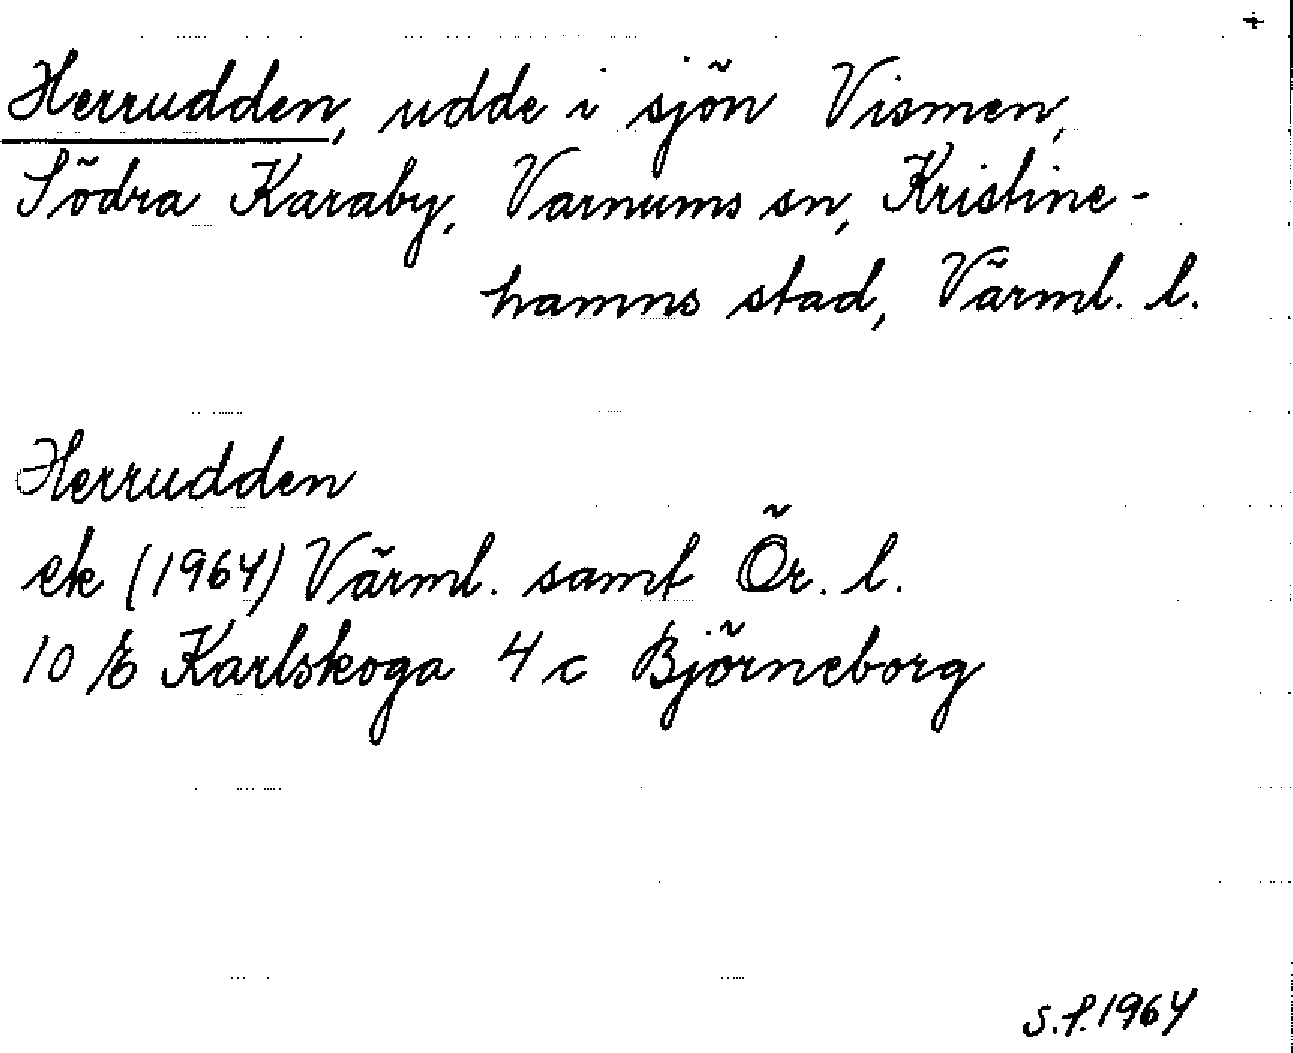 +
Herrudden, udde i sjön Vismen,
Södra Karaby, Varnums sn, Kristine-
hamns stad, Värml. l.
Herrudden
ek (1964) Värml. samt Ör. l.
10 E Karlskoga 4 c Björneborg
S.f. 1964